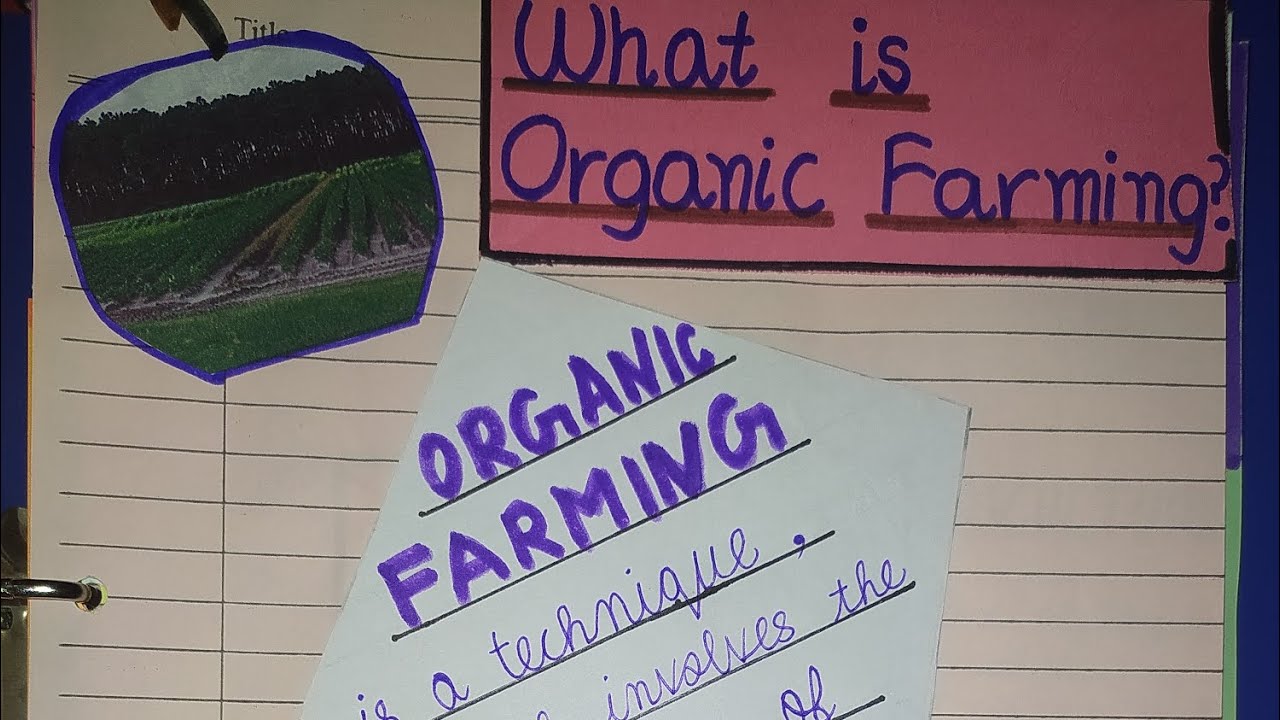 Title
What is
Organic Farming?
ORGANIC
FARMING
is a technique,
involves the
of